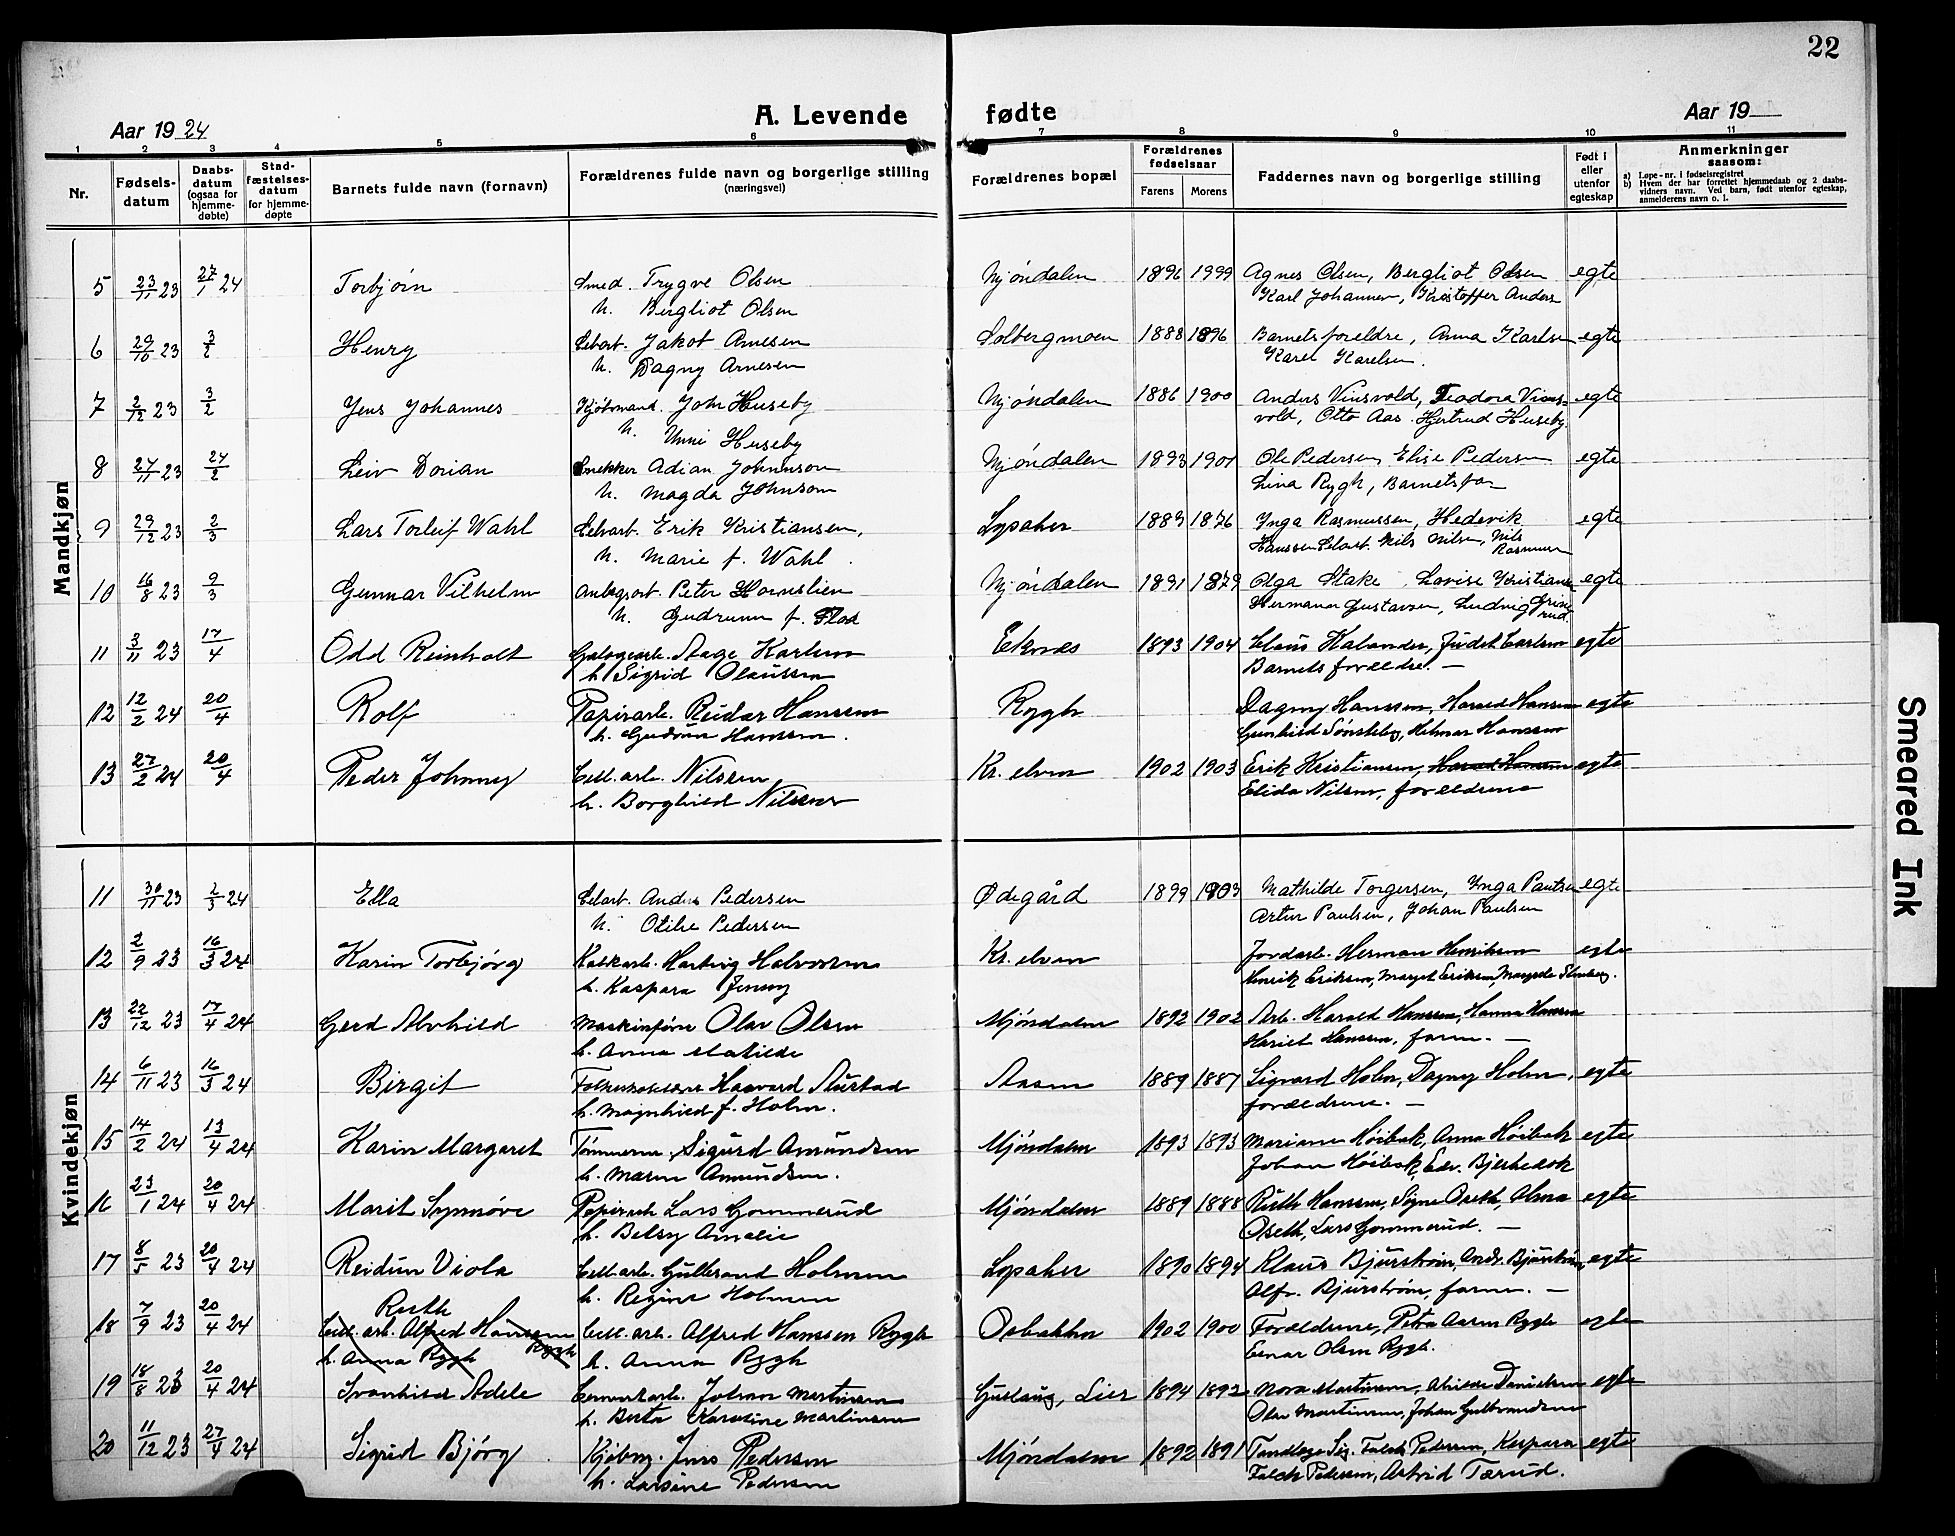 22
A. Levende fødte
Aar 1924
Aar 19
1 2 3 4 5 6 7 8 9 10 11
Nr.
Fødsels-datum
Daabs-datum (ogsaa for hjemme-døbte)
Stad-fæstelses-datum for hjemme-døpte
Barnets fulde navn (fornavn)
Forældrenes fulde navn og borgerlige stilling (næringsvei)
Forældrenes bopæl
Forældrenes fødselsaar
Farens Morens
Faddernes navn og borgerlige stilling
Født i eller utenfor egteskap
Anmerkninger saasom:
a) Løpe-nr. i fødselsregistret
b) Hvem der har forrettet hjemmedaab og 2 daabs-vidners navn. Ved barn, født utenfor egteskap, anmelderens navn o. l.
Mandkjøn
5 23/11 23 27/1 24 Torbjörn Smed. Trygve Olsen Mjöndalen 1896 1999 Agnes Olsen, Bergliot Olsen egte
h. Bergliot Olsen Karl Johannen, Kristoffer Anders
6 29/10 23 3/2 Henry Jakob Arnesen Solbergmoen 1888 1896 Barnets foreldre, Anna Karlsen egte
h. Dagny Arnesen Karel Karelsen.
7 2/12 23 3/2 Jens Johannes Kjöbmand. John Huseby Mjöndalen 1886 1900 Anders Vinsvold, Teodora Vins- egte
h. Unni Huseby vold, Otto Aas. Hjertrud Huseby.
8 27/11 23 24/2 Leiv Dorian Snekker Adian Johnnson Mjöndalen 1893 1901 Ole Pedersen, Elise Pedersen egte
h. Magda Johnson Lina Rygh, Barnets far
9 29/12 23 2/3 Lars Torleif Wahl Celarb. Erik Kristiansen, Lopaker 1883 1876 Ynga Rasmussen, Hedevik egte
h. Marie f. Wahl. Hanssen Celarb. Nils Nilsen, Nils Rasmussen
10 16/8 23 9/3 Gunnar Vilhelm Peter Hornslien Mjöndalen 1891 1879 Olga Stake, Lovise Kristiansen egte
h. Gudrunn f. Flod Hermann Gustavsen, Ludvig
11 3/11 23 17/4 Odd Reinholt Aage Karlsen Eknes 1893 1904 Claus Kalander, Judit Carlsen egte
h. Sigrid Olaussen Barnets forældre. —
12 12/2 24 20/4 Rolf Papirarb. Reidar Hanssen Rygh Dagny Hanssen, Harald Hansen egte
h. Gudrun Hanssen. Gunhild Sønsteby, Helmar Hanssen
13 27/2 24 20/4 Peder Johnny Cell.arb. Nilssen Kr. elven 1902 1903 Erik Kristiansen, Harald Hanssen egte
h. Borghild Nilssen Elida Nilsen, forældrene
Kvindekjøn
11 30/11 23 2/3 24 Ella Celarb. Anders Pedersen Ødegård 1899 1903 Mathilde Torgersen, Ynga Paulsen egte
h. Otilie Pedersen Artur Paulsen, Johan Paulsen
12 2/9 23 16/3 24 Karin Torbjörg Kalkarb. Hartvig Halvorsen Kr. elven Jordarb. Herman Henriksen egte
h. Kaspara Jenny Henrik Eriksen, Margit Eriksen,
13 22/12 23 17/4 24 Gerd Alvhild Maskinfører Olav Olsen Mjöndalen 1892 1902 Arb. Harald Hanssen, Hanna Hansen
h. Anna Matilde Hariet Hanssen, faren. —
14 6/11 23 16/3 24 Birgit Haavard Austad Aasen 1889 1887 Sigvard Holm, Dagny Holm, egte
h. Magnhild f. Holm. forældrene. —
15 14/2 24 13/4 24 Karin Margaret Tømmerm. Sigurd Amundsen Mjöndalen 1893 1893 Mariane Höibak, Anna Höibak egte
h. Maren Amundsen. Johan Höibak, Edv.
16 23/1 24 20/4 24 Marit Synnöve Papirarb. Lars Gommerud Mjöndalen 1889 1888 Ruth Hanssen, Signe Oseth, Alma egte
h. Betsy Amalie Oseth, Lars Gommerud. —
17 8/5 23 20/4 24 Reidun Viola Cell.arb. Gulbrand Holmen Lopaker 1890 1894 Klaus Bjurström, Andr. Bjurström, egte
h. Regine Holmen Alfr. Bjurström, faren. —
18 7/9 23 20/4 24 Ruth Cell. arb. Alfred Hanssen Rygh Cell. arb. Alfred Hanssen Rygh Osbakken 1902 1900 Forældrene, Petra Aasen Rygh egte
h. Anna Rygh h. Anna Rygh Einar Olsen Rygh.
19 18/8 23 20/4 24 Svanhild Adele Cementarb. Johan Martinsen Gullaug, Lier 1894 1892 Nora Martinsen, Danielsen egte
h. Berta Karoline Martinsen Olav Martinsen, Johan Gulbrandsen
20 11/12 23 27/4 24 Sigrid Björg Kjöbm. Jens Pedersen Mjöndalen 1892 1891 Tandlege Sig. Falch Pedersen, Kaspara egte
h. Larsine Pedersen Falch Pedersen, Astrid Tærud.
Smeared Ink